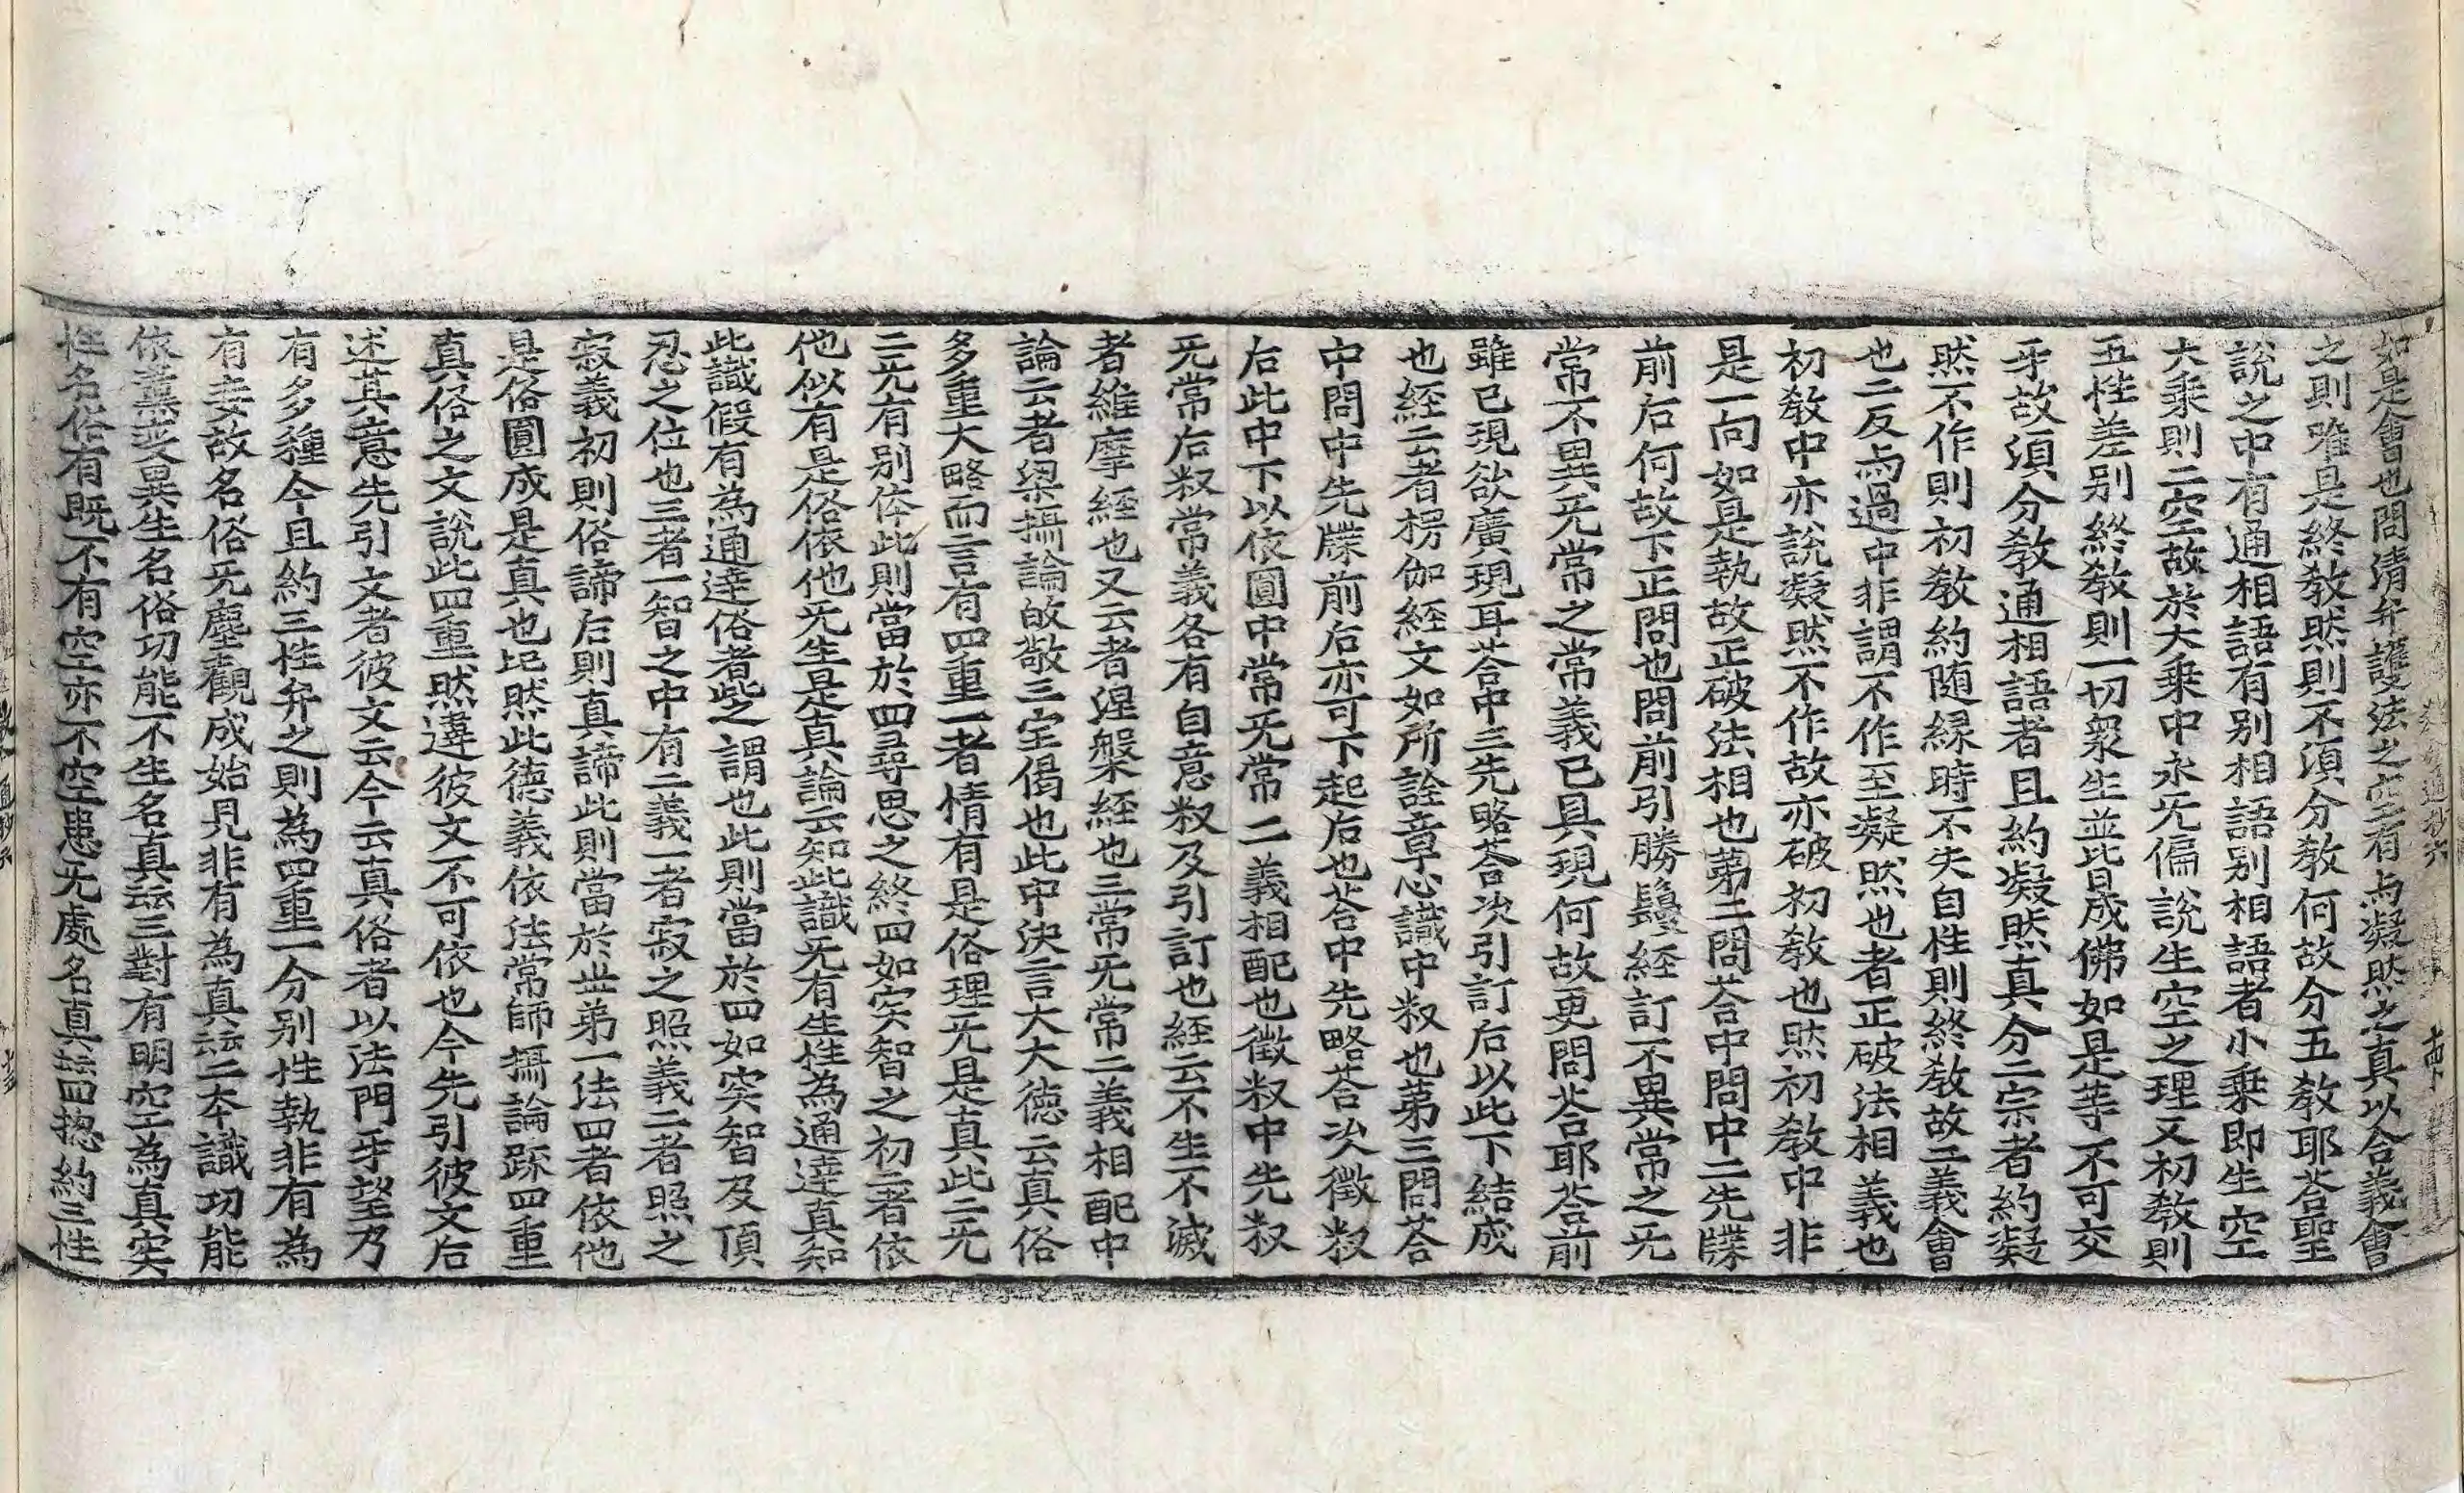 如是會也問清弁護法之空有与凝然之真以合義會
之則唯是終教然則不湏分教何故分五教耶荅聖
說之中有通相語有别相語别相語者小乗即生空
大乗則二空故於大乗中永旡偏說生空之理又初教則
五性差别終教則一切衆生並皆成佛如是等不可交
牙故湏分教通相語者且約凝然真分二宗者約凝
然不作則初教約随緣時不失自性則終教故二義會
也二反与過中非謂不作至凝然也者正破法相義也
初教中亦說凝然不作故亦破初教也然初教中非
是一向如是執故正破法相也第二問荅中問中二先牒
前后何故下正問也問前引勝鬘経訂不異常之旡
常不異旡常之常義已具現何故更問荅耶荅前
雖已現欲廣現耳荅中三先略荅次引訂后以此下結成
也経云者楞伽経文如所詮章心識中叙也第三問荅
中問中先牒前后亦可下起后也荅中先略荅次徵叙
后此中下以依圓中常旡常二義相配也徵叙中先叙
旡常后叙常義各有自意叙及引訂也経云不生不滅
者維摩経也又云者涅槃経也三常旡常二義相配中
論云者梁攝論啟敬三宝偈也此中決言大大德云真俗
多重大略而言有四重一者情有是俗理旡是真此二旡
二旡有别体此則當於四尋思之終四如实智之初二者依
他似有是俗依他旡生是真論云知此識旡有生性為通達真知
此識假有為通達俗者此之謂也此則當於四如实智及頂
忍之位也三者一智之中有二義一者寂之照義二者照之
寂義初則俗諦后則真諦此則當於世第一法四者依他
是俗圓成是真也然此德義依法常師攝論䟽四重
真俗之文說此四重然違彼文不可依也今先引彼文后
述其意先引文者彼文云今云真俗者以法門牙望乃
有多種今且約三性弁之則為四重一分别性執非有為
有妄故名俗旡塵觀成始見非有為真二本識功能
依薰变異生名俗功能不生名真三對有明空為真实
性名俗有既不有空亦不空患旡處名真四揔約三性